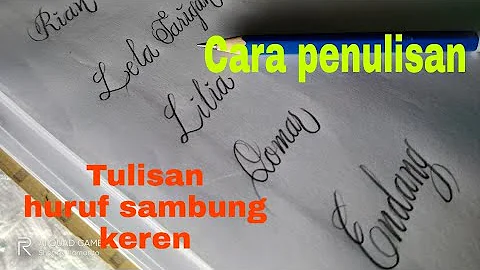 Rian
Lela Tarigan
Lilia
Endang
Cara penulisan
Tulisan
huruf sambung
keren
QUAD